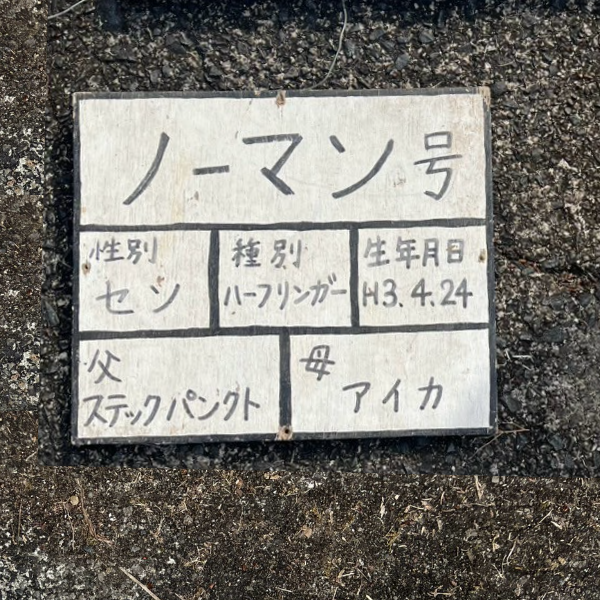 ノーマン号
性別
セン
種別
ハーフリンガー
生年月日
H3.4.24
父
ステックパンクト
母
アイカ